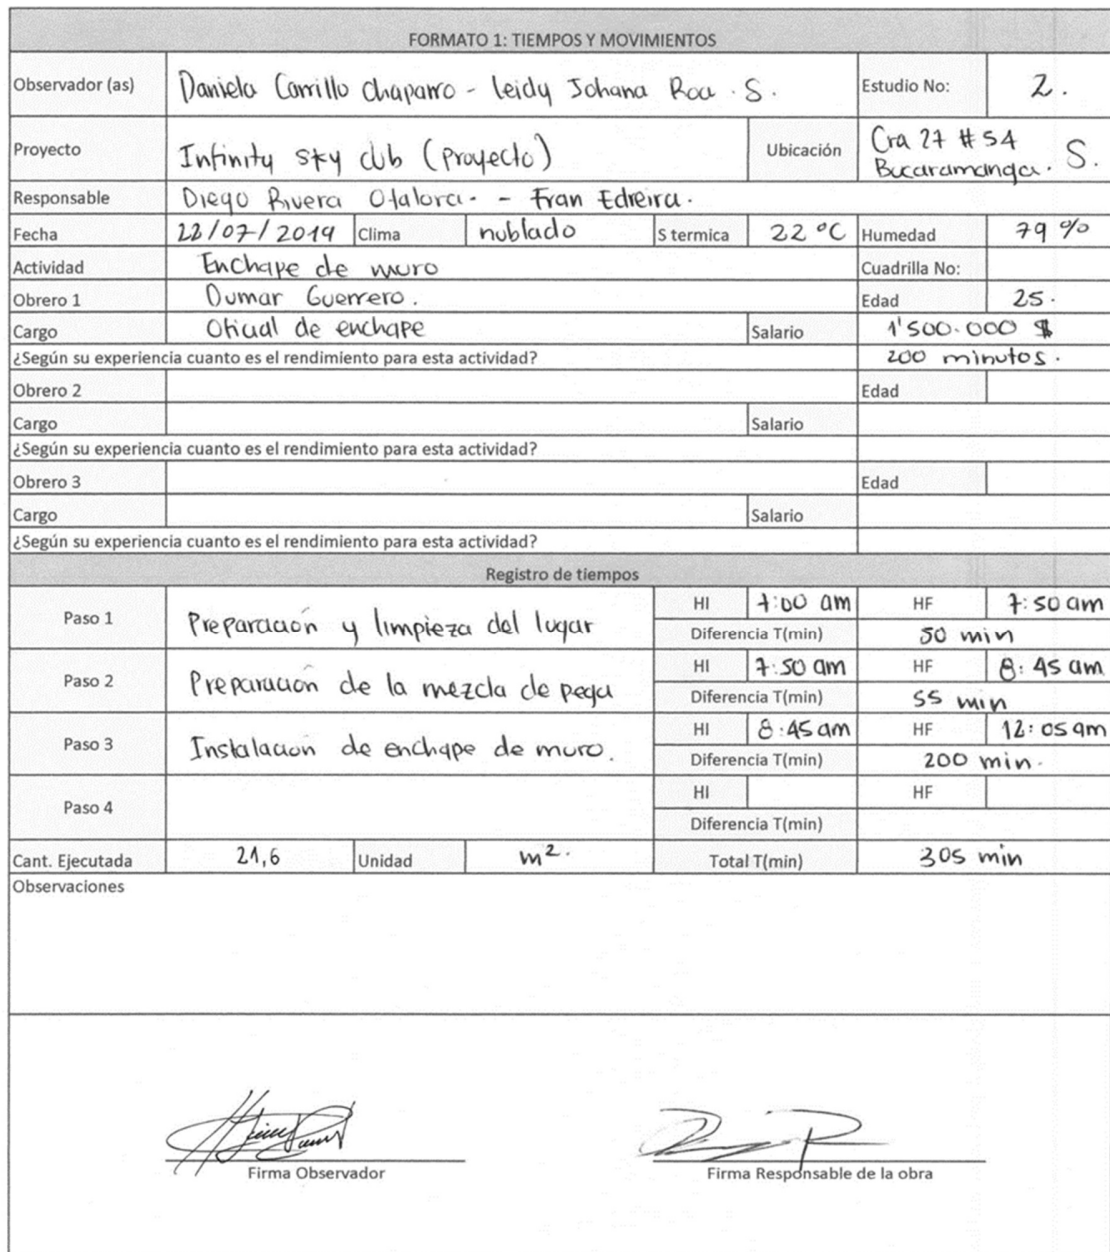 FORMATO 1: TIEMPOS Y MOVIMIENTOS
Observador (as) Daniela Carrillo Chaparro - Leidy Johana Roa . S. Estudio No: 2.
Proyecto Infinity sky club (Proyecto) Ubicación Cra 27 # 54
Bucaramanga. S.
Responsable Diego Rivera Otalora. - Fran Edreira.
Fecha 22/07/2019 Clima nublado S termica 22 °C Humedad 79 %
Actividad Enchape de muro Cuadrilla No:
Obrero 1 Dumar Guerrero. Edad 25.
Cargo Oficial de enchape Salario 1'500.000 $
¿Según su experiencia cuanto es el rendimiento para esta actividad? 200 minutos.
Obrero 2 Edad
Cargo Salario
¿Según su experiencia cuanto es el rendimiento para esta actividad?
Obrero 3 Edad
Cargo Salario
¿Según su experiencia cuanto es el rendimiento para esta actividad?
Registro de tiempos
Paso 1 Preparación y limpieza del lugar HI 7:00 am HF 7:50 am
Diferencia T(min) 50 min
Paso 2 Preparación de la mezcla de pega HI 7:50 am HF 8:45 am
Diferencia T(min) 55 min
Paso 3 Instalacion de enchape de muro. HI 8:45 am HF 12:05 am
Diferencia T(min) 200 min.
Paso 4 HI HF
Diferencia T(min)
Cant. Ejecutada 21,6 Unidad m². Total T(min) 305 min
Observaciones
Firma Observador Firma Responsable de la obra